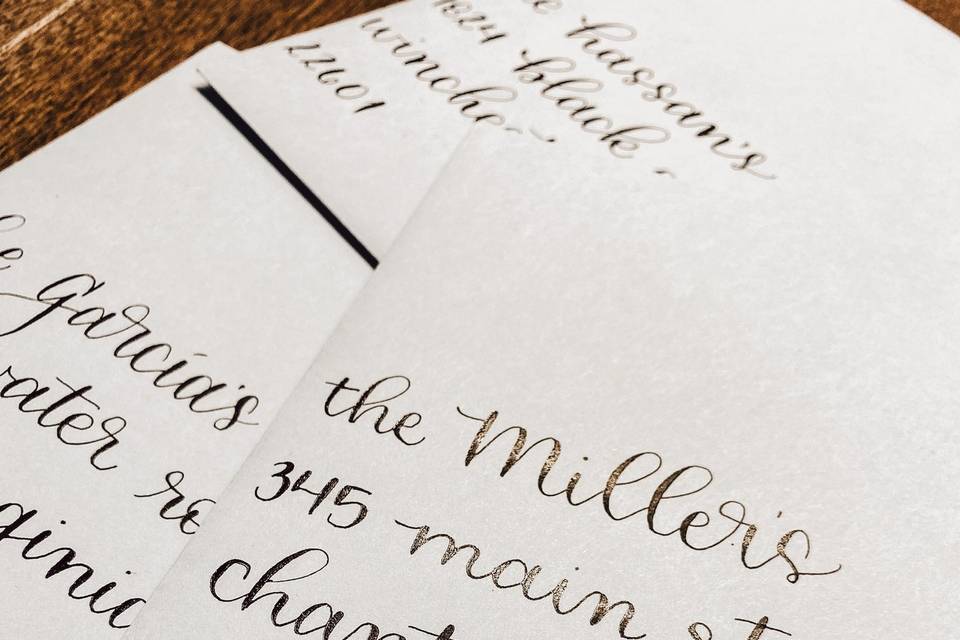 hassan's
1624 black
winche
22601
garcia's
water
ginia
the Miller's
345 main st
chant